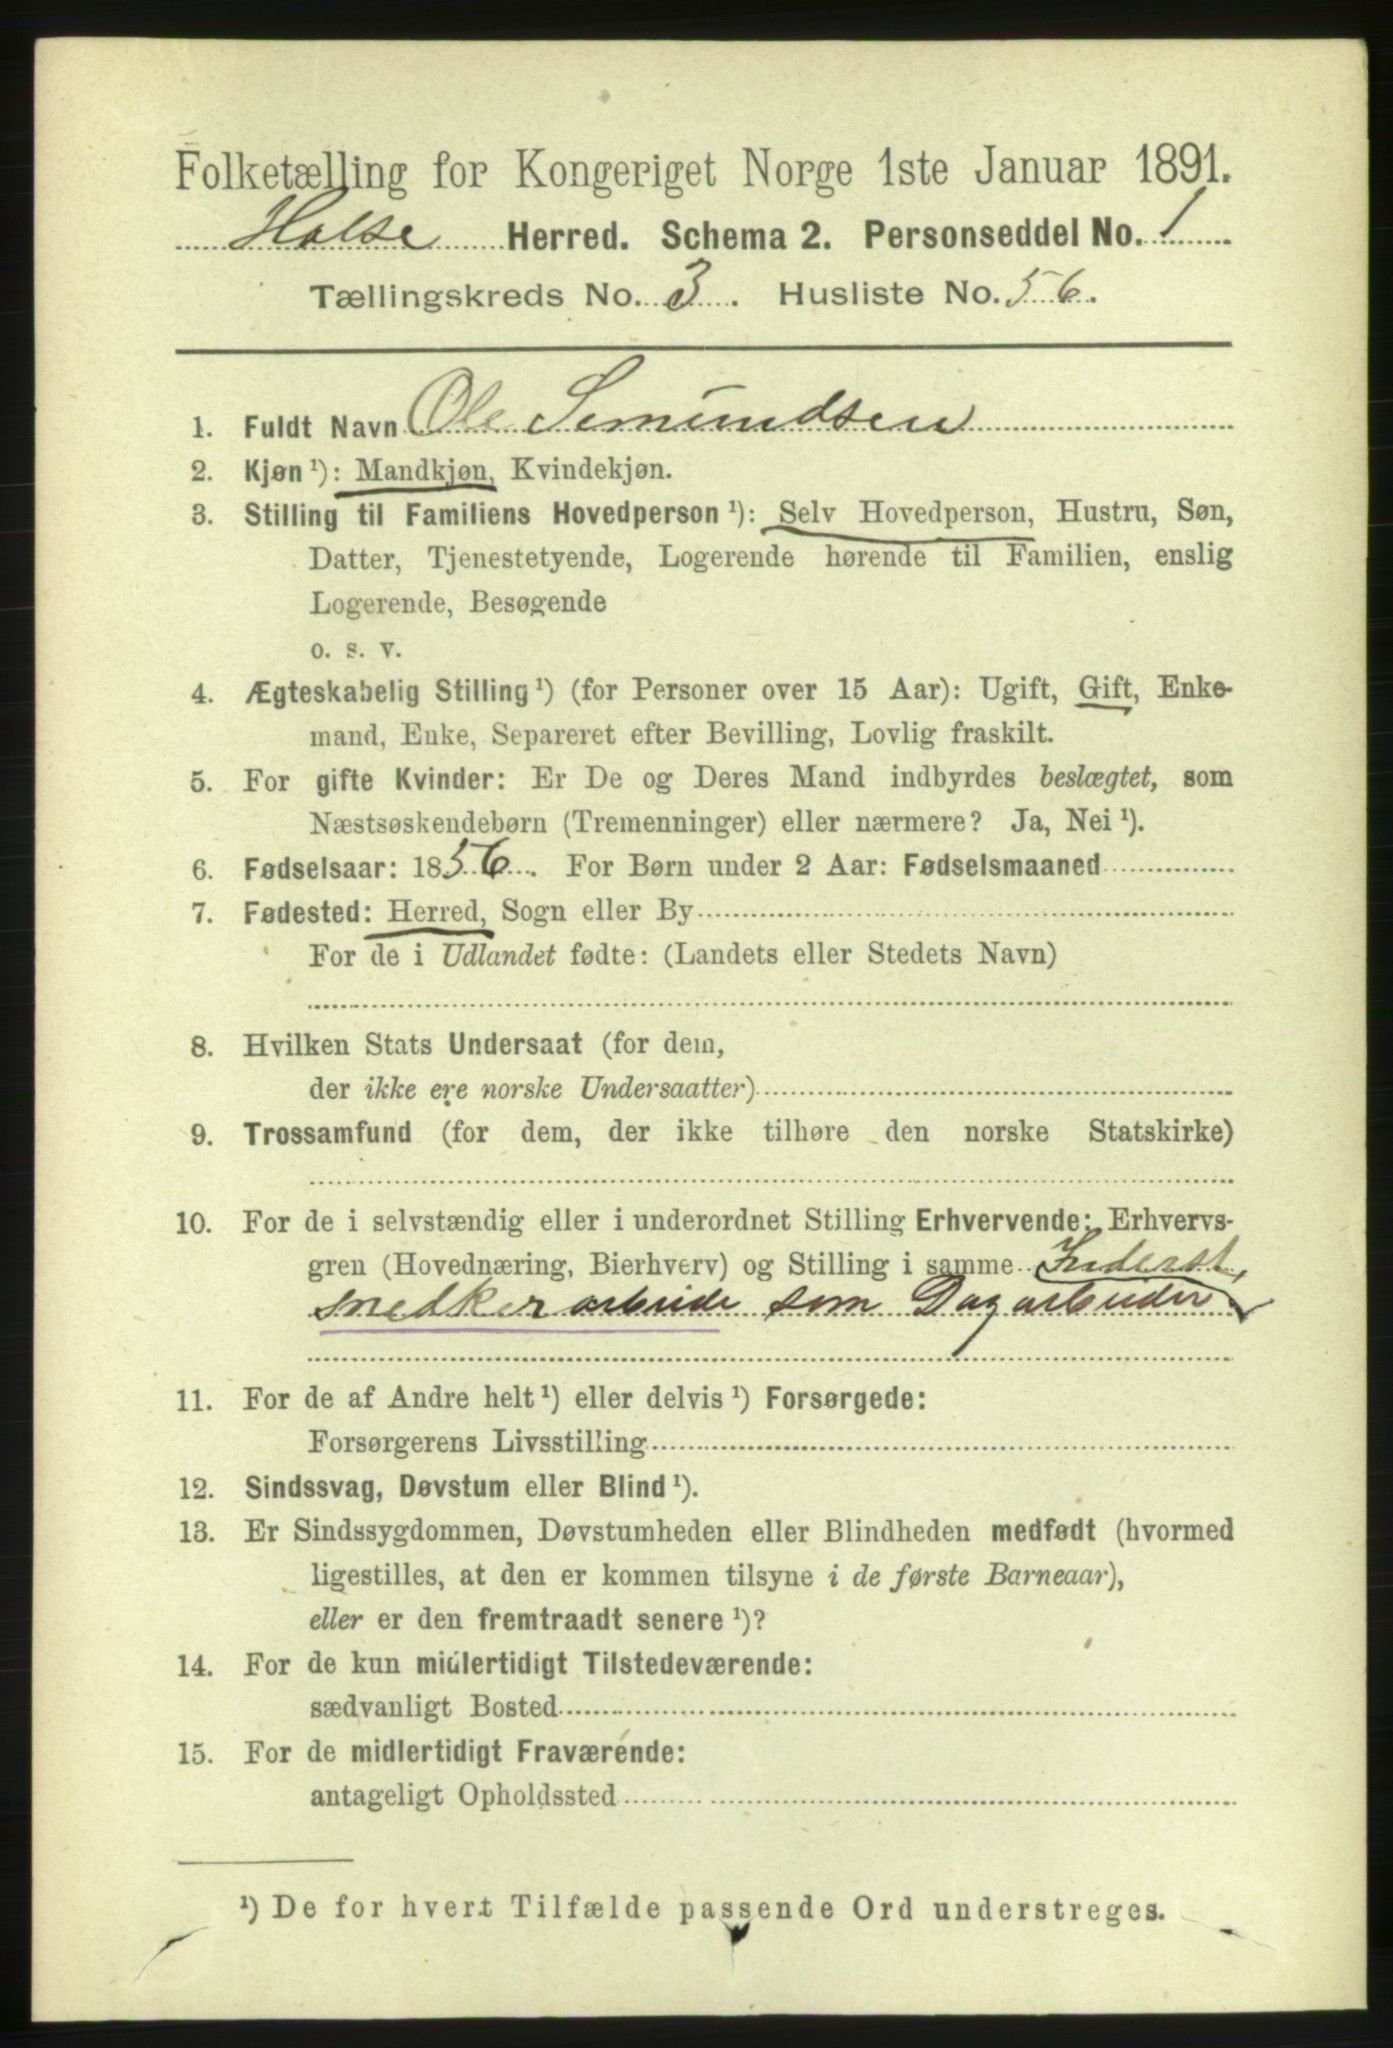 Folketælling for Kongeriget Norge 1ste Januar 1891.
Halse Herred. Schema 2. Personseddel No. 1
Tællingskreds No. 3. Husliste No. 56.
1. Fuldt Navn Ole Simundsen
2. Kjøn ¹): Mandkjøn, Kvindekjøn.
3. Stilling til Familiens Hovedperson ¹): Selv Hovedperson, Hustru, Søn,
Datter, Tjenestetyende, Logerende hørende til Familien, enslig
Logerende, Besøgende
o. s. v.
4. Ægteskabelig Stilling ¹) (for Personer over 15 Aar): Ugift, Gift, Enke-
mand, Enke, Separeret efter Bevilling, Lovlig fraskilt.
5. For gifte Kvinder: Er De og Deres Mand indbyrdes beslægtet, som
Næstsøskendebørn (Tremenninger) eller nærmere? Ja, Nei ¹).
6. Fødselsaar: 1856. For Børn under 2 Aar: Fødselsmaaned
7. Fødested: Herred, Sogn eller By
For de i Udlandet fødte: (Landets eller Stedets Navn)
8. Hvilken Stats Undersaat (for dem,
der ikke ere norske Undersaatter)
9. Trossamfund (for dem, der ikke tilhøre den norske Statskirke)
10. For de i selvstændig eller i underordnet Stilling Erhvervende: Erhvervs-
gren (Hovednæring, Bierhverv) og Stilling i samme Inderst,
snedkerarbeide som Dagarbeider
11. For de af Andre helt ¹) eller delvis ¹) Forsørgede:
Forsørgerens Livsstilling
12. Sindssvag, Døvstum eller Blind ¹).
13. Er Sindssygdommen, Døvstumheden eller Blindheden medfødt (hvormed
ligestilles, at den er kommen tilsyne i de første Barneaar),
eller er den fremtraadt senere ¹)?
14. For de kun midlertidigt Tilstedeværende:
sædvanligt Bosted
15. For de midlertidigt Fraværende:
antageligt Opholdssted
¹) De for hvert Tilfælde passende Ord understreges.